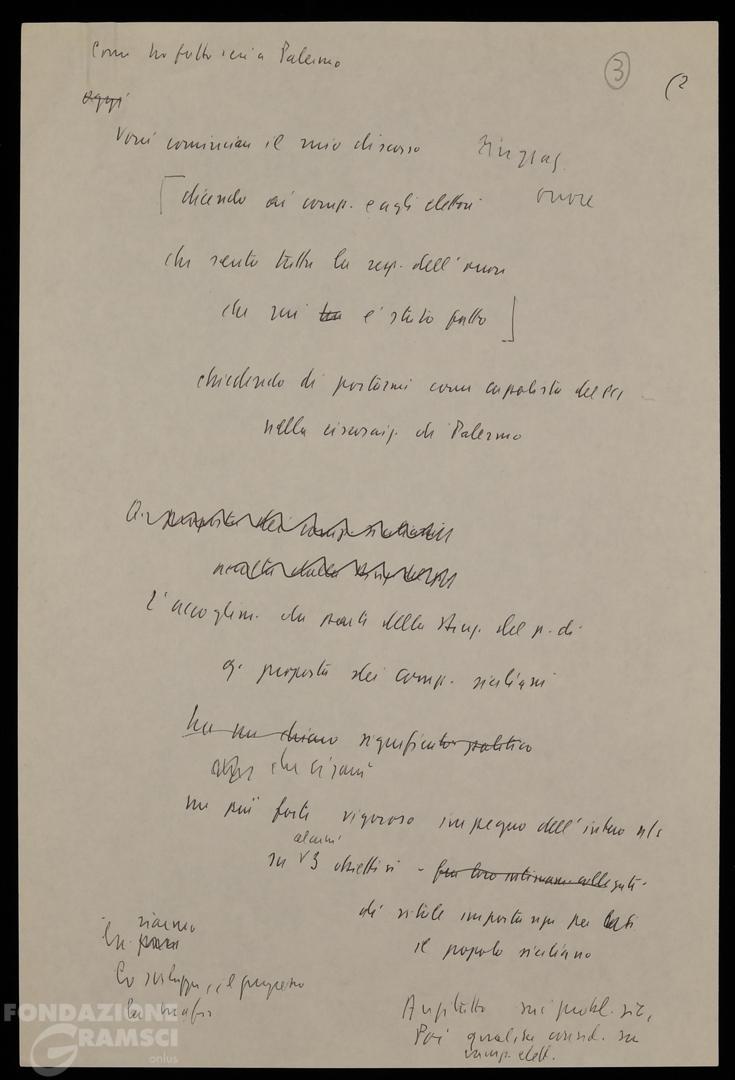 Come ho fatto ieri a Palermo
3
(2
oggi
Vorrei cominciare il mio discorso
ringraz.
[dicendo ai comp. e agli elettori
onore
che sento tutta la resp. dell'onore
che mi è stato fatto]
chiedendo di portarmi come capolista del PCI
nella circoscriz. di Palermo
proposta dei comp. siciliani
L'accoglim. da parte della del p. di
q. proposta dei comp. siciliani
ha un chiaro significato politico
che ci sarà
un più forte vigoroso impegno dell'intero
alcuni
su 3 obiettivi - fra loro collegati -
di vitale importanza per tutto
il popolo siciliano
siamo
Lo sviluppo, il progresso
la mafia
Anzitutto sui probl. sic.
Poi qualche consid. su
camp. elett.
FONDAZIONE
GRAMSCI
onlus